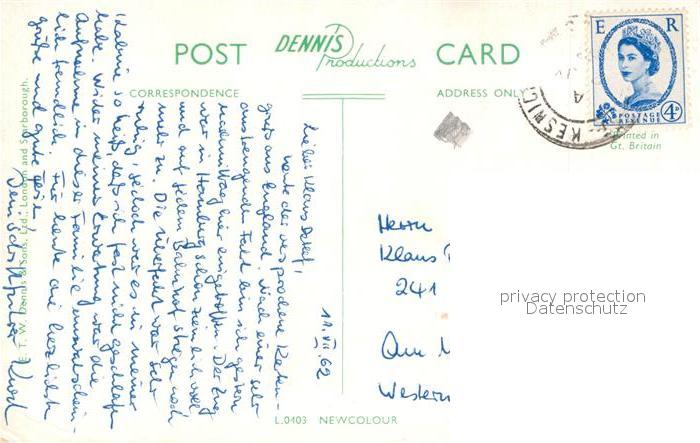 POST DENNIS Productions CARD
CORRESPONDENCE
ADDRESS ONLY
E R
POSTAGE REVENUE 4D
KESWICK
Printed in
Gt. Britain
11.VII.62
Lieber Klaus Detlef,
heute der versprochene Karten-
gruß aus England. Nach einer sehr
anstrengenden Fahrt bin ich gestern
nachmittag hier eingetroffen. Der Zug
war in Hamburg schon ziemlich voll
und auf jedem Bahnhof stiegen noch
mehr zu. Die Überfahrt war sehr
ruhig, jedoch war es in meiner
Kabine so heiß, daß ich fast nicht geschlafen
habe. Wider meine Erwartung war die
Aufnahme in dieser Familie unwahrschein-
lich freundlich. Für heute die herzlichsten
Grüße und gute Ferien
Dein
Herrn
Klaus
241
Am
Western
privacy protection
Datenschutz
E. T. W. Dennis & Sons, Ltd., London and Scarborough.
L.0403 NEWCOLOUR